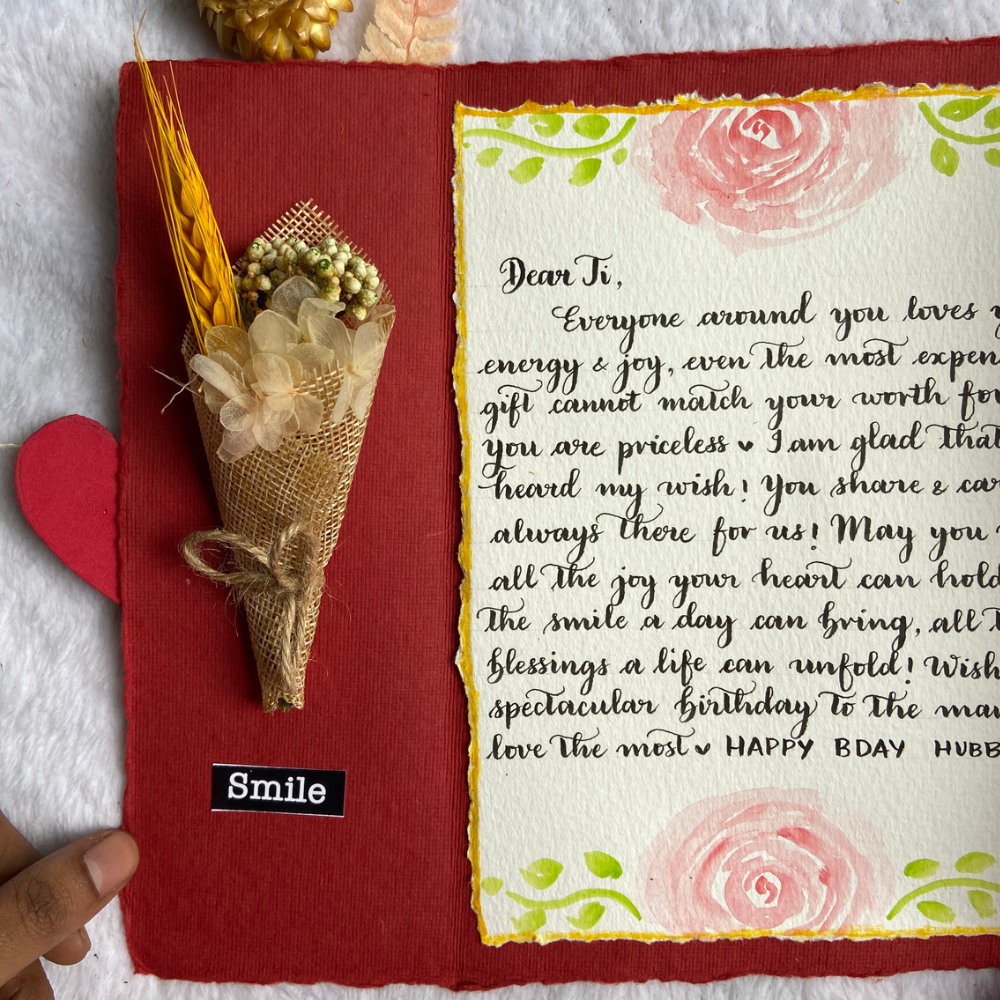 Smile
Dear Ti,
Everyone around you loves
energy & joy, even the most expen
gift cannot match your worth for
you are priceless ♥ I am glad that
heard my wish! You share & car
always there for us! May you
all the joy your heart can hold
the smile a day can bring, all t
blessings a life can unfold! Wish
spectacular birthday to the man
love the most ♥ HAPPY BDAY HUBB